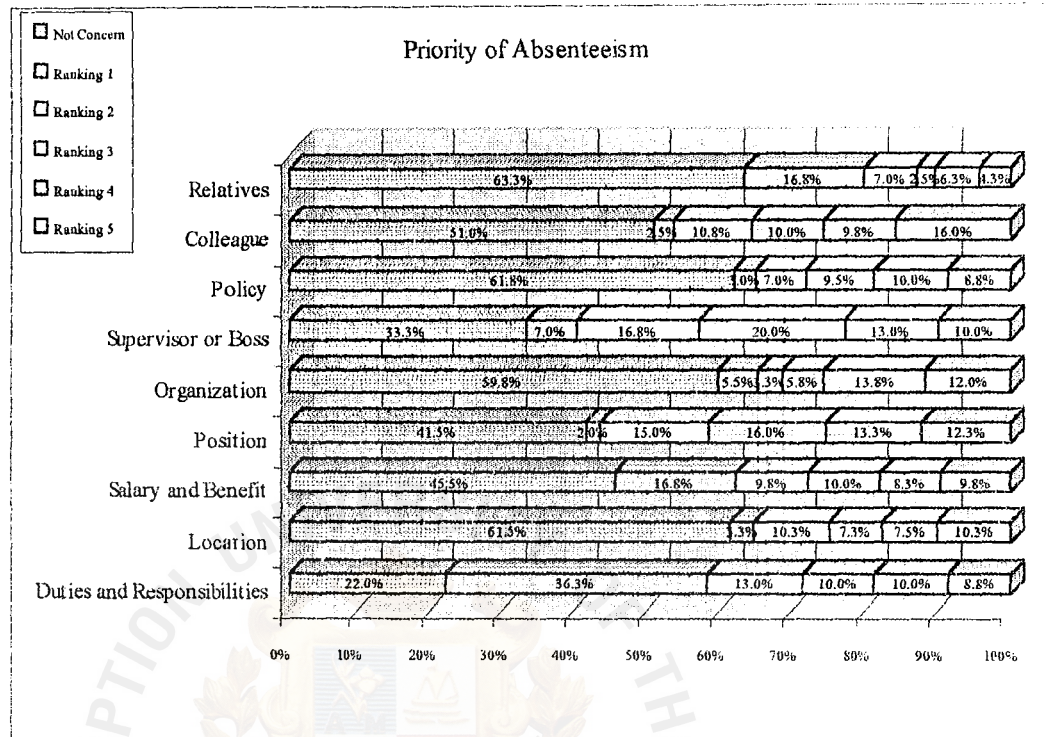 Not Concern
Ranking 1
Ranking 2
Ranking 3
Ranking 4
Ranking 5
Priority of Absenteeism
Relatives 63.3% 16.8% 7.0% 2.5% 6.3% 4.3%
Colleague 51.0% 2.5% 10.8% 10.0% 9.8% 16.0%
Policy 61.8% 3.0% 7.0% 9.5% 10.0% 8.8%
Supervisor or Boss 33.3% 7.0% 16.8% 20.0% 13.0% 10.0%
Organization 59.8% 5.5% .3% 5.8% 13.8% 12.0%
Position 41.5% 2.0% 15.0% 16.0% 13.3% 12.3%
Salary and Benefit 45.5% 16.8% 9.8% 10.0% 8.3% 9.8%
Location 61.5% 3.3% 10.3% 7.3% 7.5% 10.3%
Duties and Responsibilities 22.0% 36.3% 13.0% 10.0% 10.0% 8.8%
0% 10% 20% 30% 40% 50% 60% 70% 80% 90% 100%